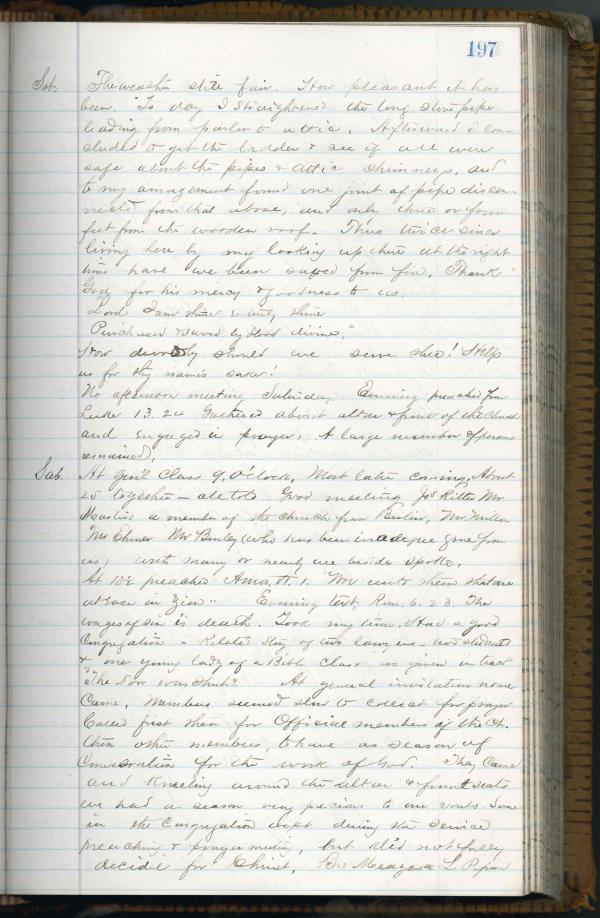 197
Sat. The weather still fair. How pleasant it has
been. To day I straightened the long stove pipe
leading from parlor to attic. Afterward I con-
cluded to get the ladder & see if all were
safe about the pipes & attic chimneys, and
to my amazement found one joint of pipe discon-
nected from that above, and only three or four
feet from the wooden roof. Thus twice since
living here by my looking up there at the right
time have we been saved from fire. Thank
God for his mercy & goodness to us.
Lord I am thine entirely thine
Purchased & saved by blood divine."
How devotedly should we serve thee! Help
us for thy name's sake!
No afternoon meeting Saturday. Evening preached from
Luke 13.24 Gathered about altar & front of the Church
and engaged in prayer. A large number of persons
remained.
Sab. At Gen'l Class 9, O'clock. Most late coming. About
25 together - all told. Good meeting Jos Mr
a member of the church from Berlin, Mr. Miller
Mr Mr (who has been in gone from
us) with many or nearly all beside spoke.
At 10½ preached Amos, 1. "Woe unto them that are
at ease in Zion" Evening text, Rom. 6.23. The
wages of sin is death. Took my time. Had a good
Congregation - Related story of two lawyers - two students
& one young lady of a Bible Class as given in tract
"The Door was Shut" At general invitation none
Came, Members seemed slow to collect for prayer
Called first then for Official members of the Ch.
then other members, to have a season of
Consecration for the work of God. They Came
and Kneeling around the altar & front seats
we had a season very precious to our souls Some
in the Congregation wept during the service
preaching & prayer meeting, but did not fully
decide for Christ. Bro L. P. from